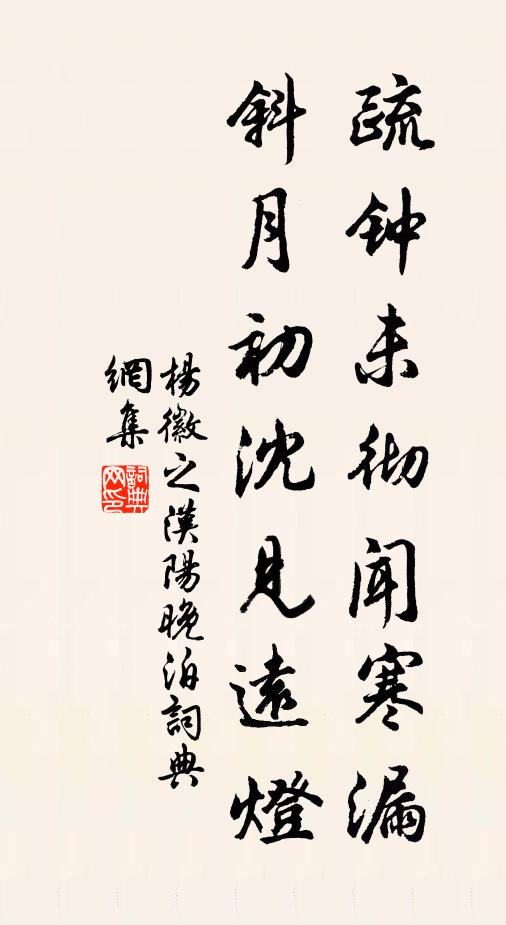 疏钟未彻闻寒漏
斜月初沈見遠燈
楊徽之漢陽晚泊詞典
網集
詞典網印